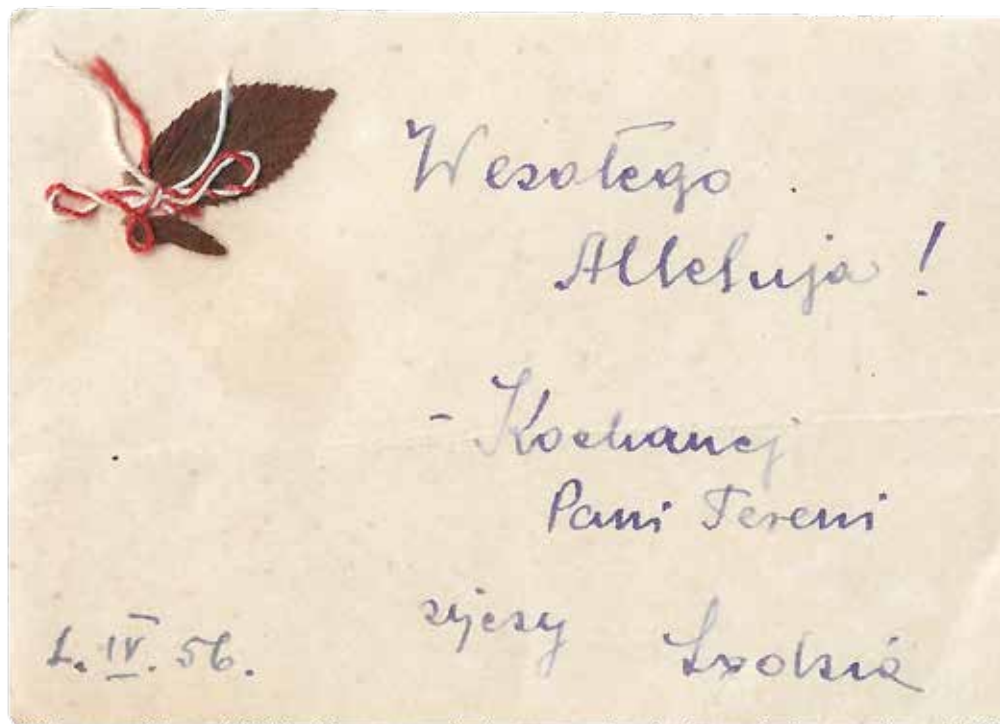 Wesołego
Alleluja!
- Kochanej
Pani Tereni
życzy
1. IV. 56.